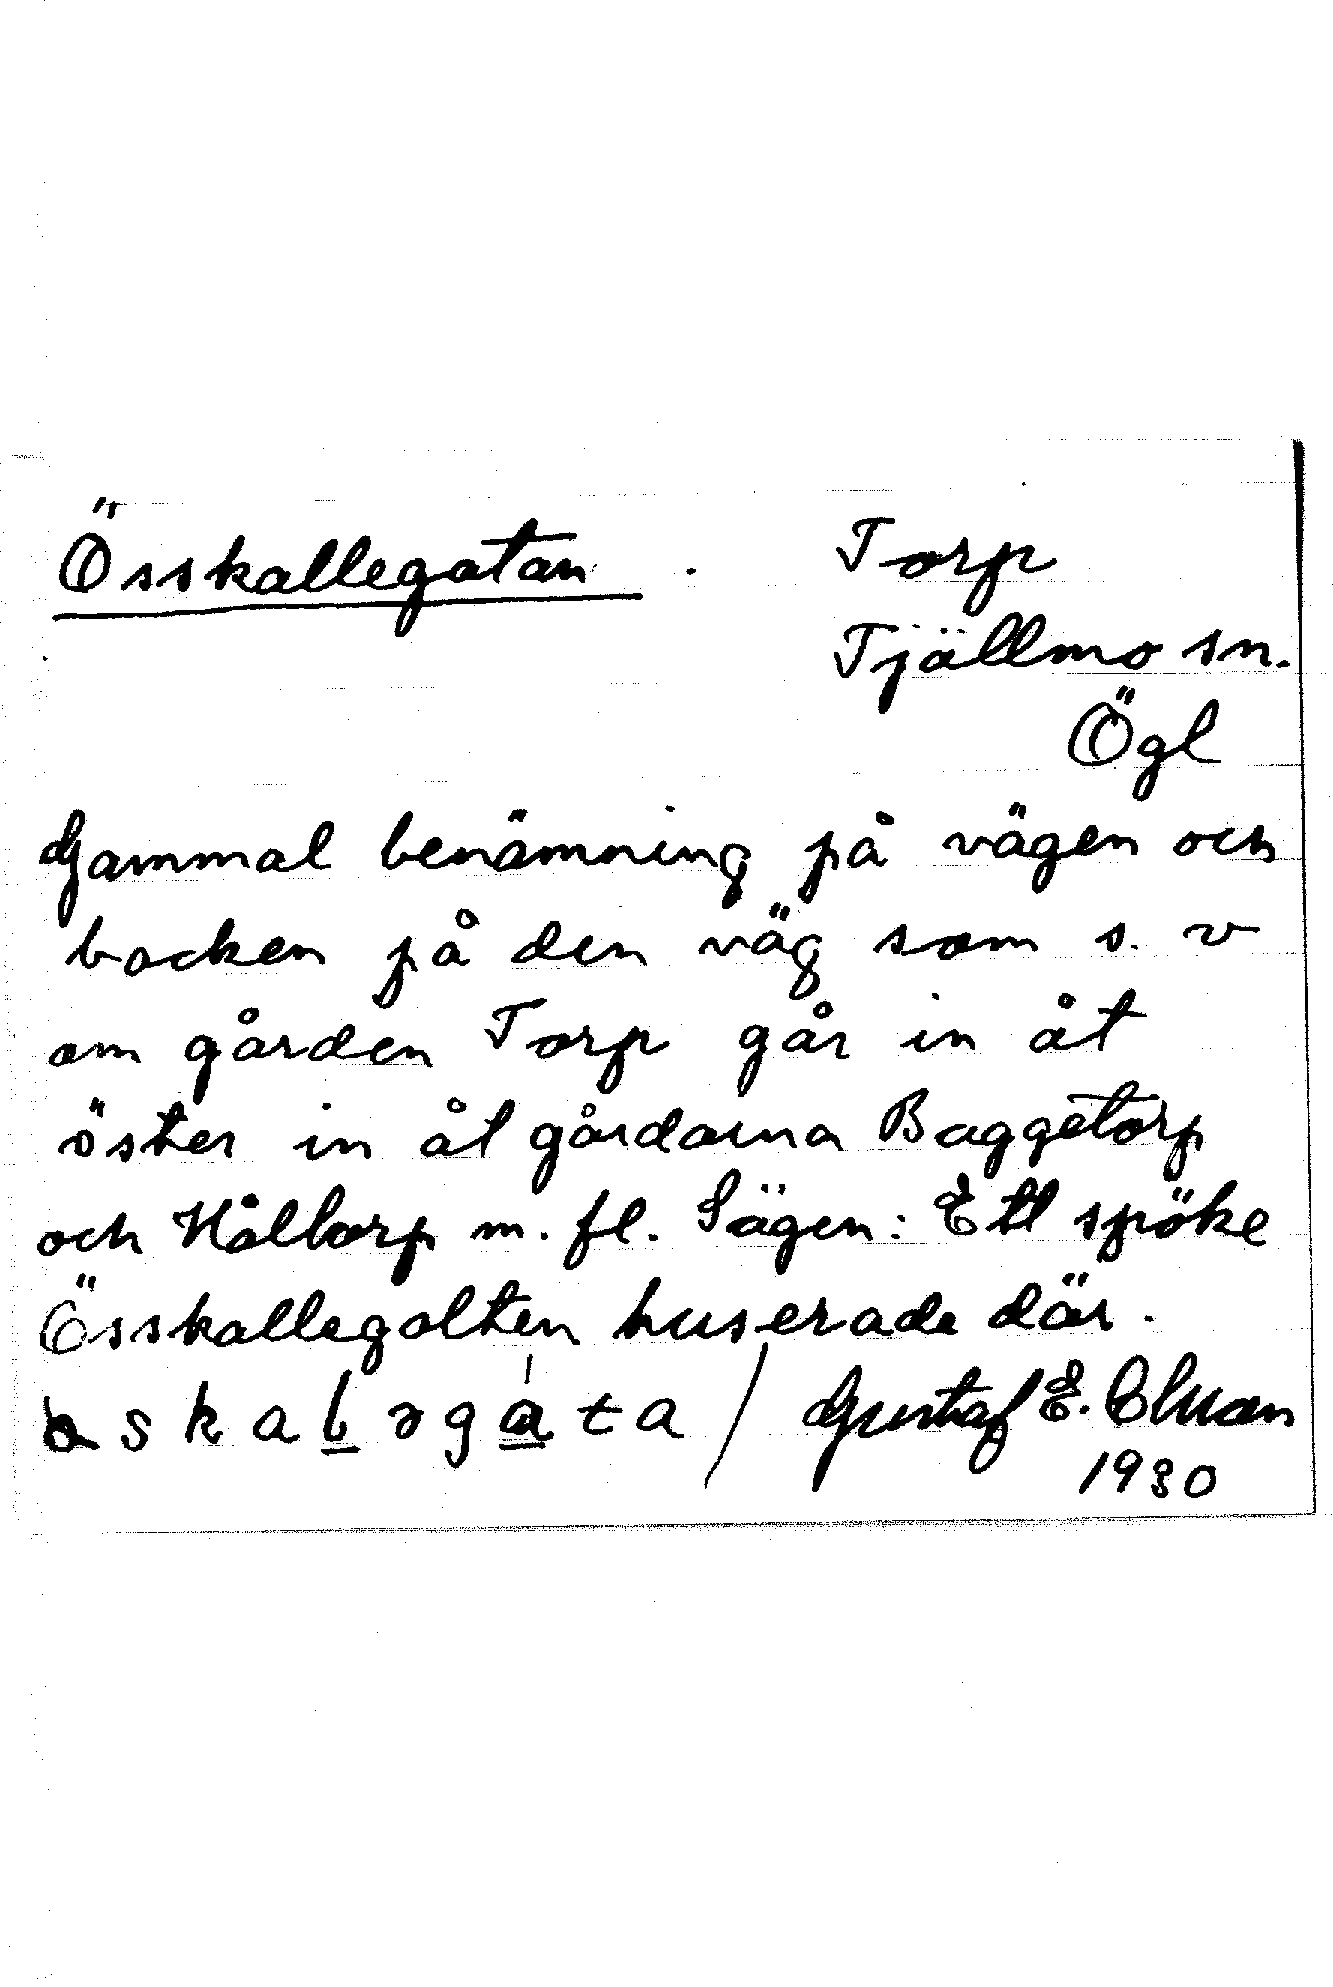 Össkallegatan . Torp
Tjällmo sn.
Ögl
Gammal benämning på vägen och
backen på den väg som s. v
om gården Torp går in åt
öster in åt gårdarna Baggetorp
och Håltorp m. fl. Sägen: Ett spöke
Össkallegalten huserade där.
skalegata / Gustaf E.
1930